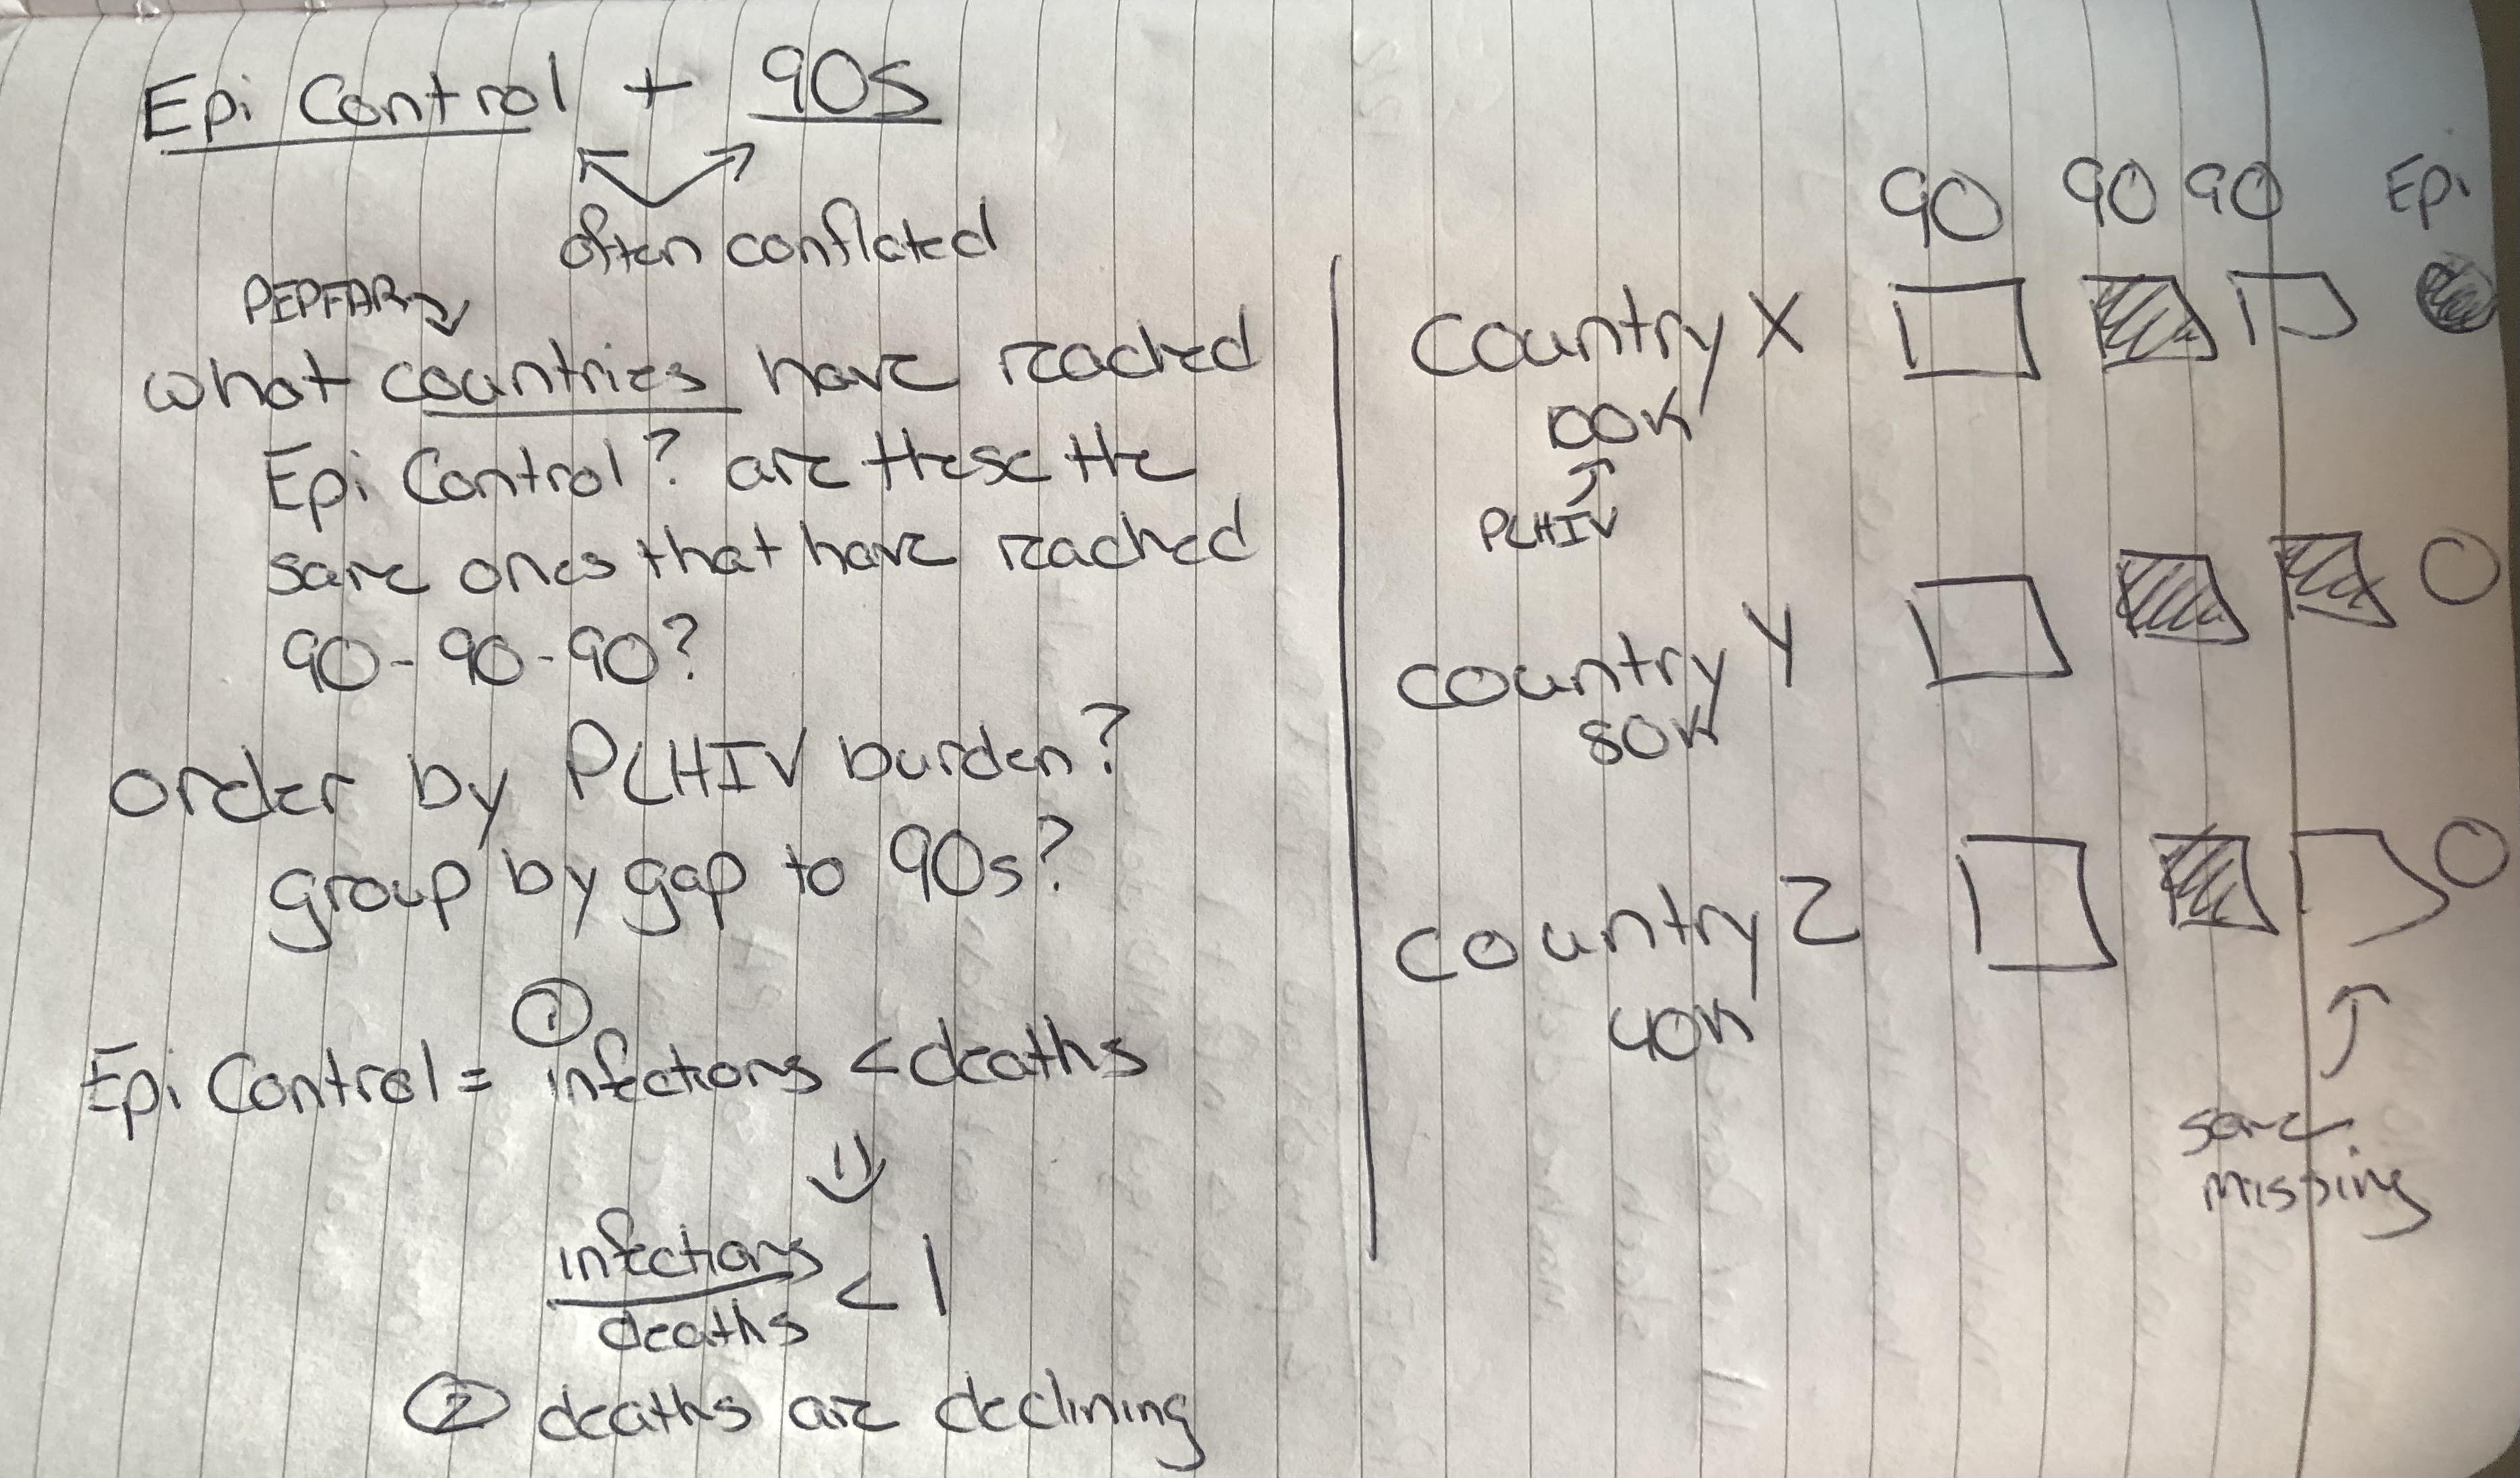 Epi Control + 90s
often conflated
PEPFAR
what countries have reached
Epi Control? are these the
same ones that have reached
90-90-90?
order by PLHIV burden?
group by gap to 90s?
Epi Control = ① infections < deaths
infections
deaths
< 1
② deaths are declining
90 90 90 Epi
Country X
100K
PLHIV
country Y
80K
country Z
40K
some
missing